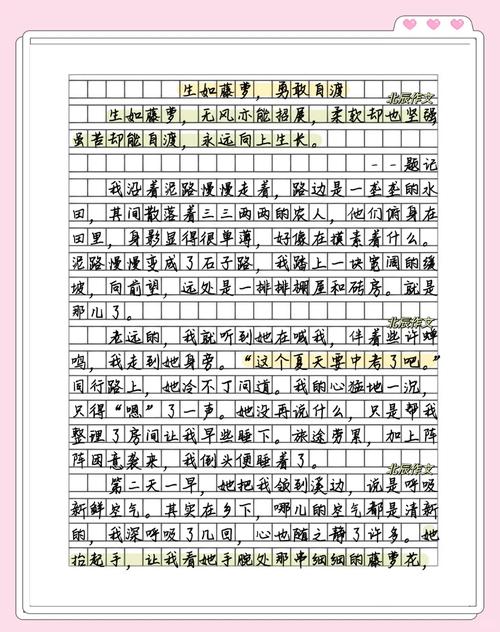 生如藤萝，勇敢自渡
北辰作文
生如藤萝，无风亦能招展，柔软却也坚强
虽苦却能自渡，永远向上生长。
--题记
我沿着泥路慢慢走着，路边是一垄垄的水
田，其间散落着三三两两的农人，他们俯身在
田里，身影显得很单薄，好像在摸素着什么。
泥路慢慢变成了石子路，我踏上一块宽阔的缓
坡，向前望，远处是一排排棚屋和砖房。就是
那儿了。
北辰作文
老远的，我就听到她在喊我，伴着些许蝉
鸣，我走到她身旁。“这个夏天要中考了吧。”
同行路上，她冷不丁问道。我的心猛地一沉，
只得“嗯”了一声。她没再说什么，只是帮我
整理了房间让我早些睡下。旅途劳累，加上阵
阵困意袭来，我倒头便睡着了。
北辰作文
第二天一早，她把我领到溪边，说是呼吸
新鲜空气。其实在乡下，哪儿的空气都是清新
的，我深呼吸了几回，心也随之静了许多。她
抬起手，让我看她手腕处那串细细的藤萝花，